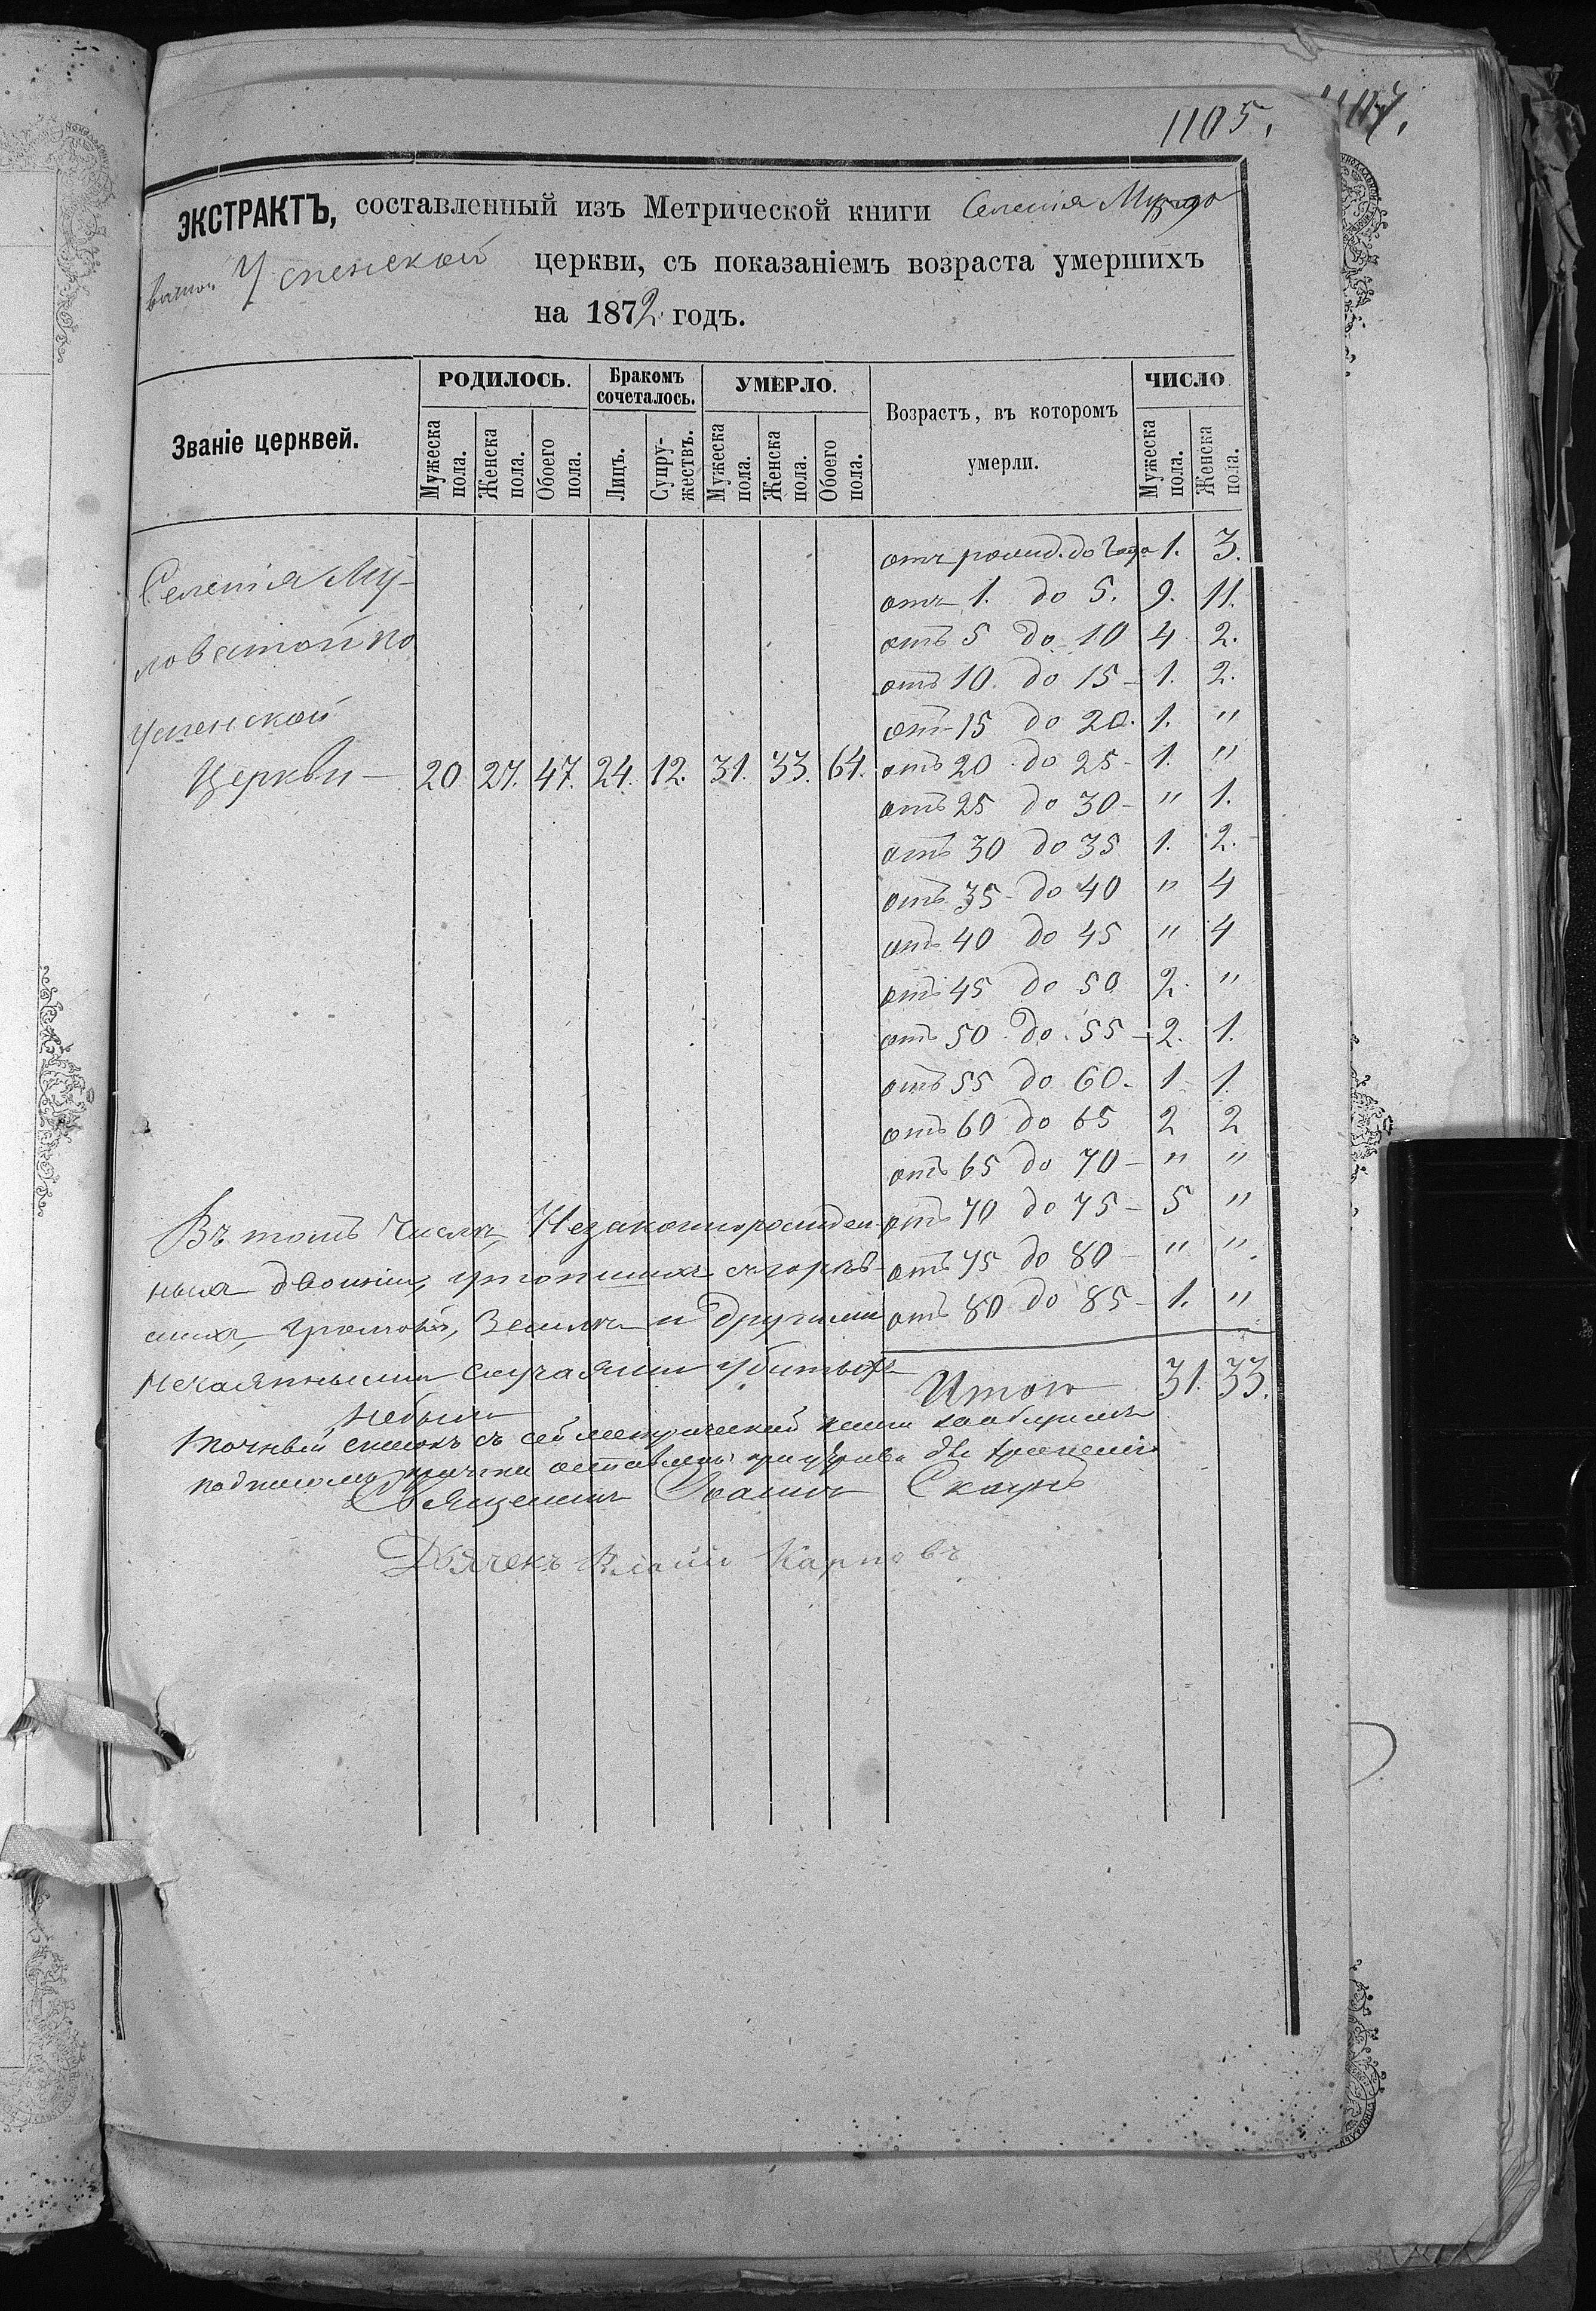 1105.
ЭКСТРАКТЪ, составленный изъ Метрической книги Селенія
Успенской церкви, съ показаніемъ возраста умершихъ
на 1872 годъ.
Званіе церквей.
РОДИЛОСЬ.
Бракомъ сочеталось.
УМЕРЛО.
Возрастъ, въ которомъ умерли.
ЧИСЛО
Мужеска пола.
Женска пола.
Обоего пола.
Лицъ.
Супружествъ.
Мужеска пола.
Женска пола.
Обоего пола.
Мужеска пола.
Женска пола.
Селенія
Успенской
Церкви — 20 27. 47. 24. 12. 31. 33. 64.
отъ рожд. до года 1. 3.
отъ 1. до 5. 9. 11.
отъ 5 до 10 4 2.
отъ 10. до 15 — 1. 2.
отъ 15 до 20. 1. "
отъ 20 до 25 - 1. "
отъ 25 до 30 - " 1.
отъ 30 до 35 1. 2.
отъ 35 - до 40 " 4
отъ 40 до 45 " 4
отъ 45 до 50 2. "
отъ 50 до 55 — 2. 1.
отъ 55 до 60. 1 1.
отъ 60 до 65 2 2
отъ 65 до 70 — " "
отъ 70 до 75 — 5 "
отъ 75 до 80 — " "
отъ 80 до 85 — 1. "
Итого 31. 33.
Въ томъ числѣ, Незаконнорожден-
ныхъ двоинь, утопшихъ сгорѣв-
шихъ, громомъ, землею и другими
нечаянными случаями убитыхъ
небыло
Точный списокъ съ сей метрической книги за общимъ
подписомъ причта оставленъ при церкви для храненія
Священникъ Іоаннъ
Дьячекъ Карповъ